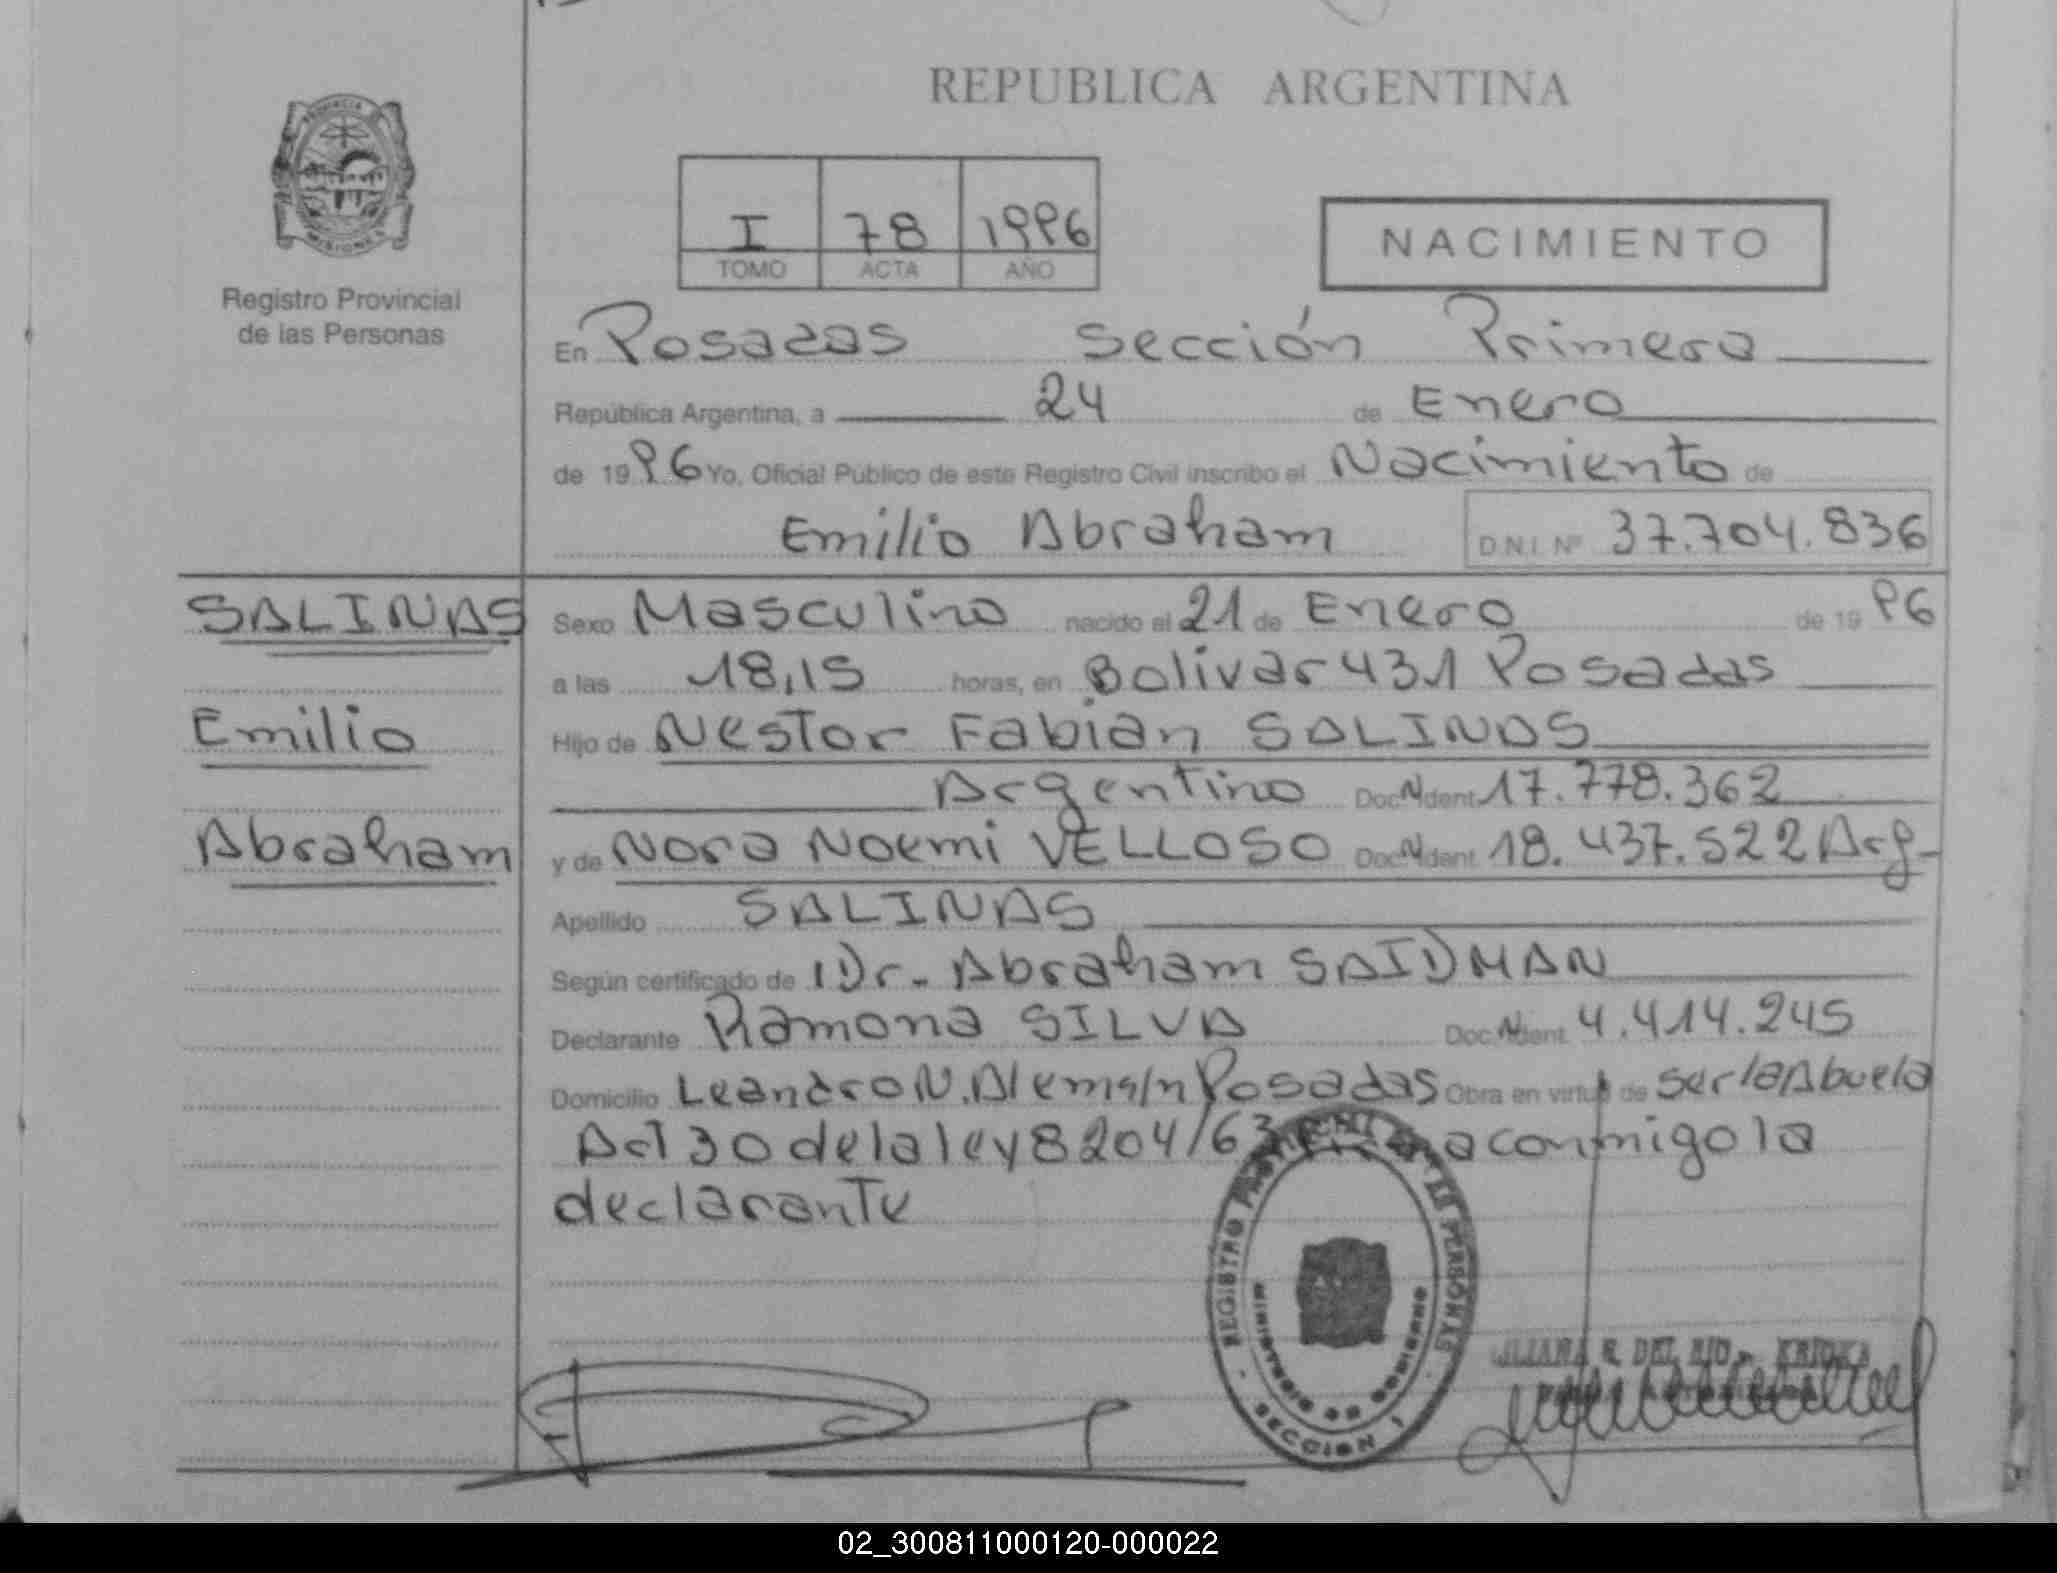 REPUBLICA ARGENTINA
PROVINCIA
MISIONES
Registro Provincial
de las Personas
I 78 1996
TOMO ACTA AÑO
NACIMIENTO
En Posadas Sección Primera
República Argentina, a 24 de Enero
de 1996 Yo, Oficial Público de este Registro Civil inscribo el Nacimiento de
Emilio Abraham D.N.I. Nº 37.704.836
SALINAS
Emilio
Abraham
Sexo Masculino nacido el 21 de Enero de 1996
a las 18,15 horas, en Bolivar 431 Posadas
Hijo de Nestor Fabián SALINAS
Argentino Doc. Ident. 17.778.362
y de Nora Noemi VELLOSO Doc. Ident. 18.437.522 Arg-
Apellido SALINAS
Según certificado de Dr. Abraham SAIDMAN
Declarante Ramona SILVA Doc. Ident. 4.414.245
Domicilio Leandro N. Alem s/n Posadas Obra en virtud de ser la Abuela
Act 30 de la ley 8204/63 conmigo la
declarante
REGISTRO DE LAS PERSONAS
MINISTERIO DE GOBIERNO
SECCION 1
R. DEL RIO
02_300811000120-000022